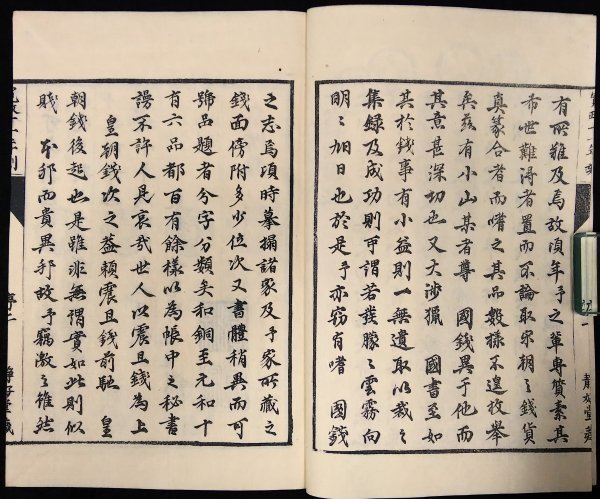 有所難及焉故頃年予之輩專質素其
布世難得者置而不論取宋朝之錢貨
真篆合者而嗜之其品數樣不遑枚舉
矣茲有小山某者尊 國錢異于他而
其意甚深切也又大涉獵 國書至如
其於錢事有小益則一無遺取以裁之
集録及成功則可謂若撥朦之雲霧向
明〻旭日也於是予亦窃有嗜 國錢
之志焉頃時摹搨諸家及予家所藏之
錢面傍附多少位次又書體稍異而可
號品題者分字分類矣和銅至元和十
有六品都百有餘樣以為帳中之秘書
謾不許人見哀哉世人以震旦錢為上
皇朝錢次之蓋頼震旦錢前驅 皇
朝錢後起也是雖非無謂實如此則似
賤本邦而貴異邦故予竊激之雖然